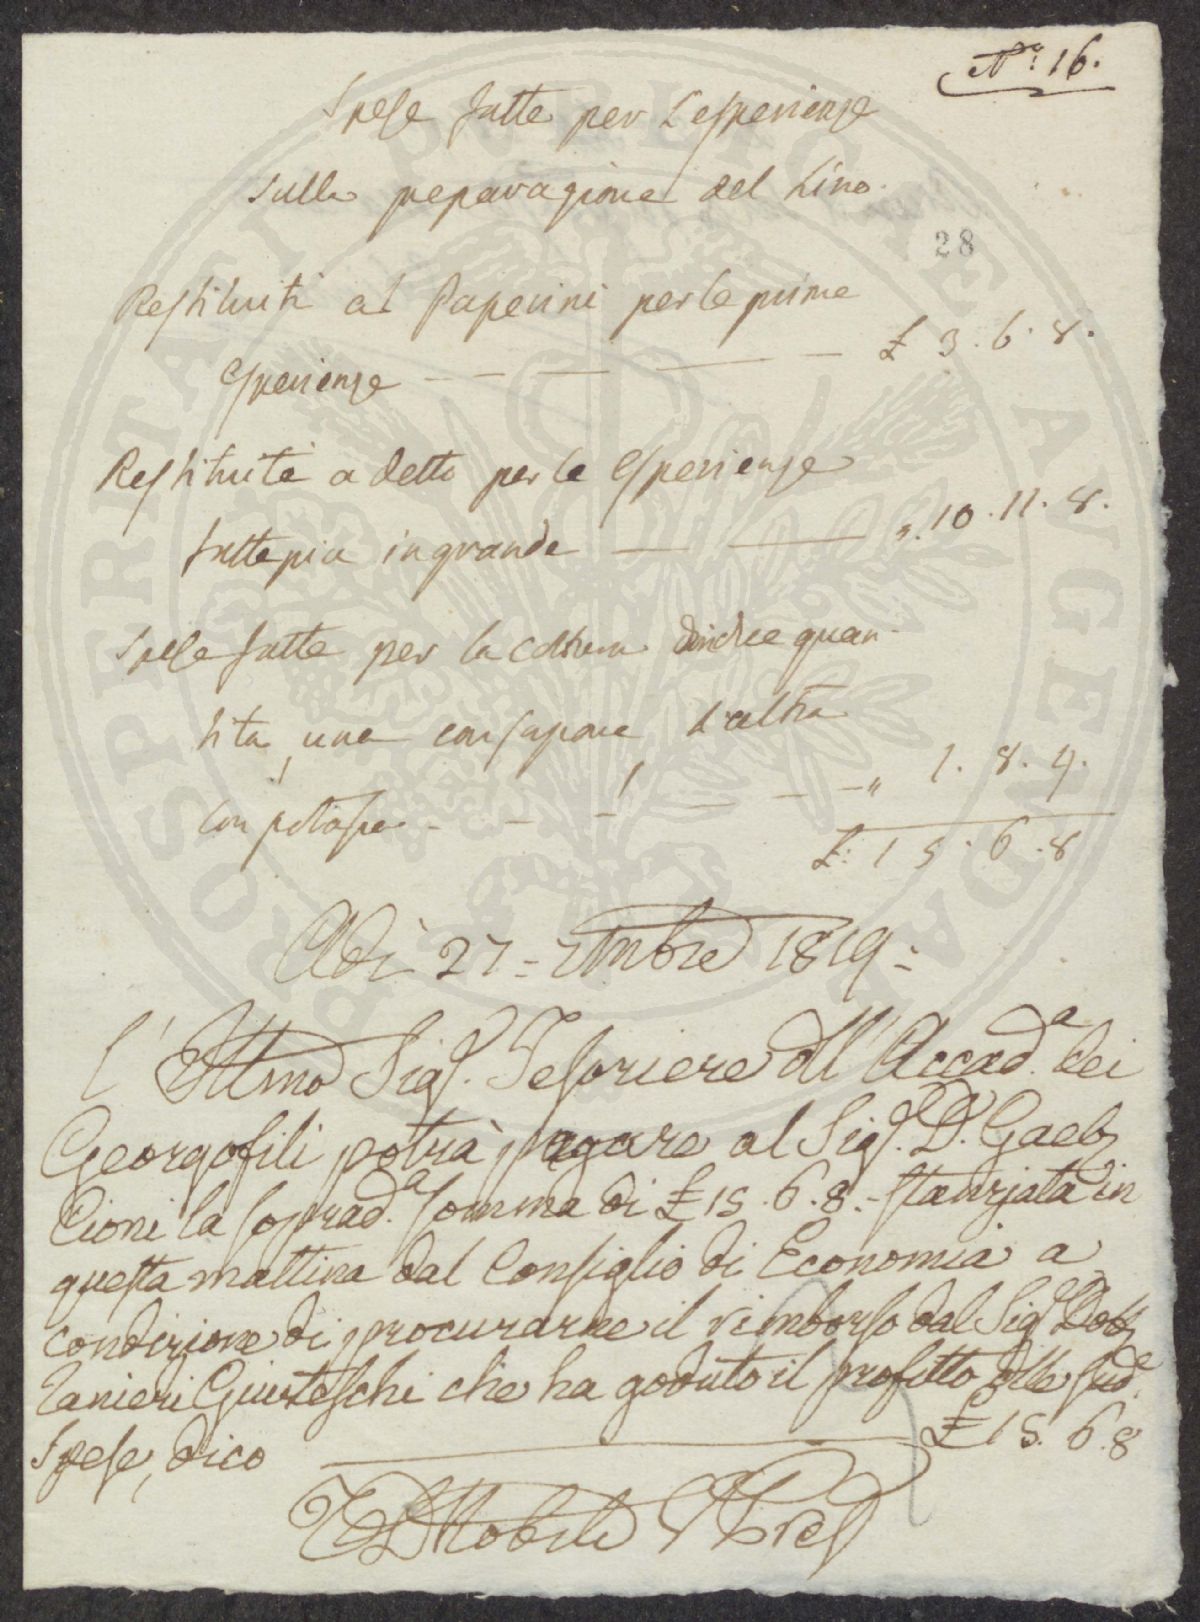 N.º 16.
Spese fatte per l'esperienze
sulla preparazione del Lino.
28
Restituiti al Paperini per le prime
esperienze £ 3. 6. 8.
Restituite a detto per le esperienze
fatte più in grande " 10. 11. 8.
Spese fatte per la quan-
tità, una con sapone l'altra
con potassa " 1. 8. 4.
£: 15. 6. 8
Adì 27 1819:
L'Illmo Sigr. Tesoriere dell'Accad.a dei
Georgofili potrà pagare al Sigr. D. Gaet.
Cioni la soprad.a somma di £ 15. 6. 8. stanziata in
questa mattina dal Consiglio di Economia a
condizione di procurarne il rimborso dal Sigr Dott.
Ranieri che ha goduto il profitto delle sud.e
Spese, dico £ 15. 6. 8
PROSPERITATI PVBLICAE AVGENDAE